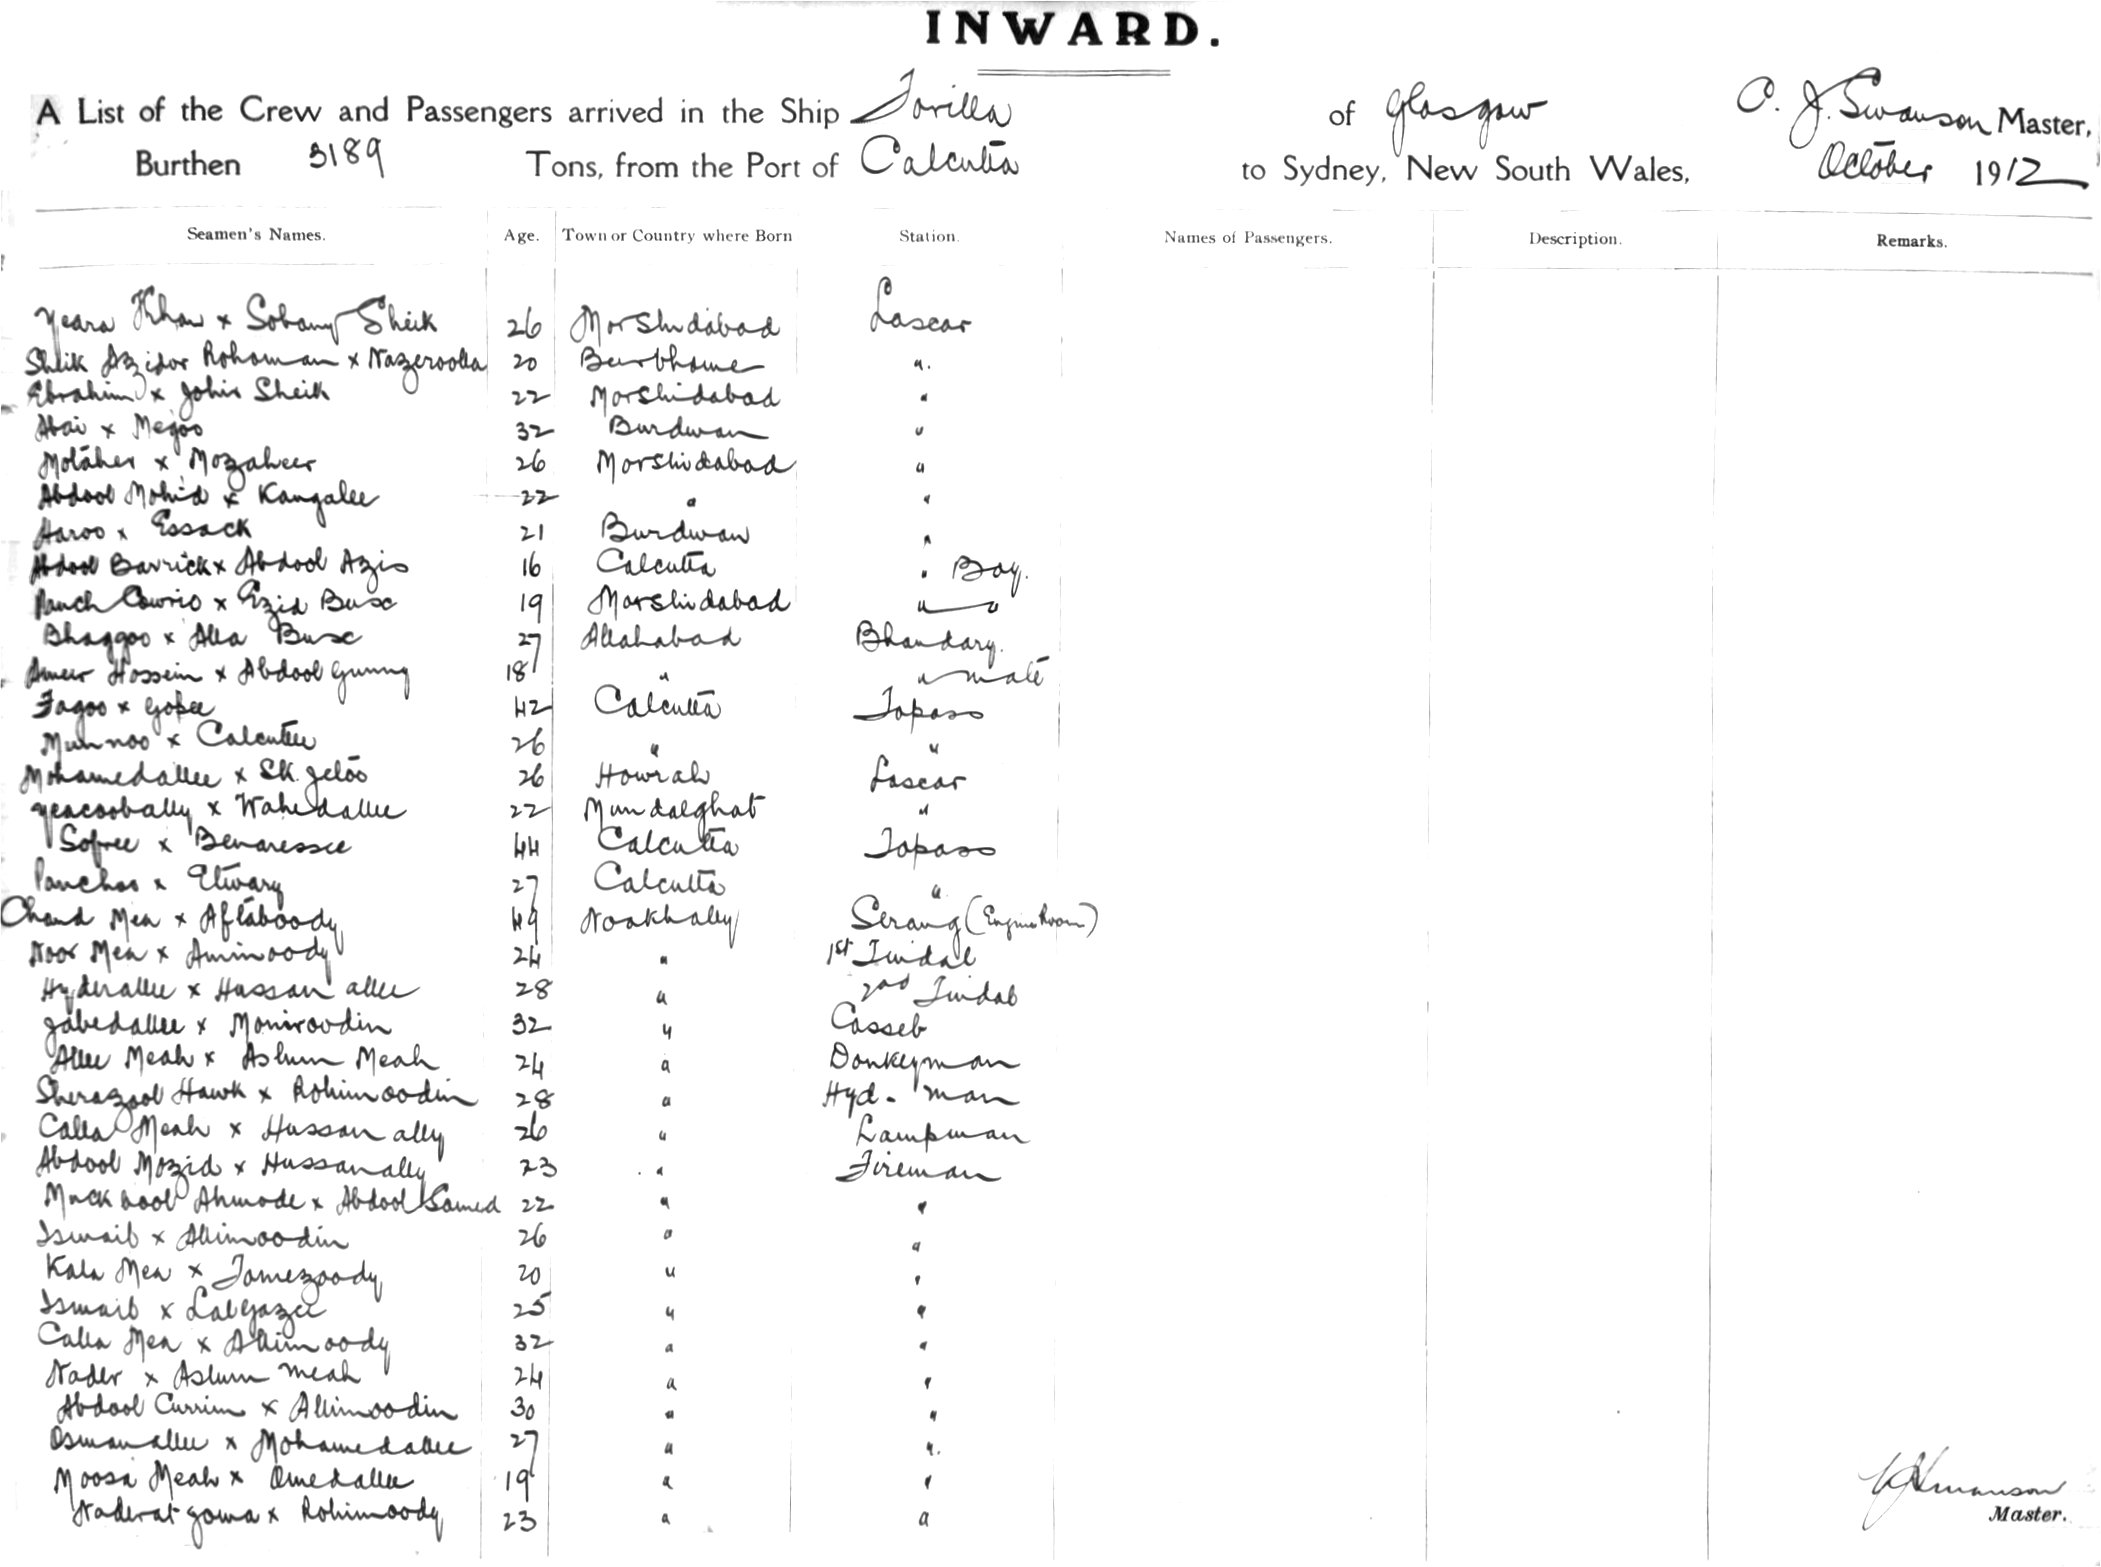 INWARD.
A List of the Crew and Passengers arrived in the Ship Torilla of Glasgow C. J. Swanson Master,
Burthen 3189 Tons, from the Port of Calcutta to Sydney, New South Wales, October 1912
Seamen's Names. Age. Town or Country where Born Station. Names of Passengers. Description. Remarks.
Yeara Khan x Sobany Sheik 26 Morshidabad Lascar
Sheik Azidor Rohoman x Nazeroolla 20 Beerbhome "
Ebrahim x Johir Sheik 22 Morshidabad "
Abai x Megoo 32 Burdwan "
Motaher x Mozaheer 26 Morshidabad "
Abdool Mohid x Kangalee 22 " "
Haroo x Essack 21 Burdwan "
Abdool Barrick x Abdool Azis 16 Calcutta " Boy.
Panch Cowrio x Ezid Busc 19 Morshidabad " "
Bhaggoo x Alla Busc 27 Allahabad Bhandary.
Ameer Hossein x Abdool Gunny 18 " " mate
Fagoo x Gopee 42 Calcutta Topass
Munnoo x Calcuttee 26 " "
Mohamedallee x Sk. Jetoo 26 Howrah Lascar
Yeacoobally x Wahedallee 22 Mundalghat "
Sofree x Benaressee 44 Calcutta Topass
Panchoo x Etwary 27 Calcutta "
Chand Mea x Aftaboody 49 Noakhally Serang (Engine Room)
Noor Mea x Aminoody 24 " 1st Tindal
Hyderallee x Hassan allee 28 " 2nd Tindal
Jabedallee x Moniroodin 32 " Casseb
Allee Meah x Aslum Meah 24 " Donkeyman
Sherazool Hawk x Rohimoodin 28 " Hyd - man
Calla Meah x Hussan ally 26 " Lampman
Abdool Mozid x Hussanally 23 " Fireman
Muckbool Ahmode x Abdool Samed 22 " "
Ismail x Allimoodin 26 " "
Kala Mea x Tomezoody 20 " "
Ismail x Lalgazee 25 " "
Calla Mea x Allimoody 32 " "
Nader x Aslum meah 24 " "
Abdool Currim x Allimoodin 30 " "
Osmanallee x Mohamedallee 27 " "
Moosa Meah x Omedallee 19 " "
Naderat Joma x Rohimoody 23 " "
CJSwanson
Master.